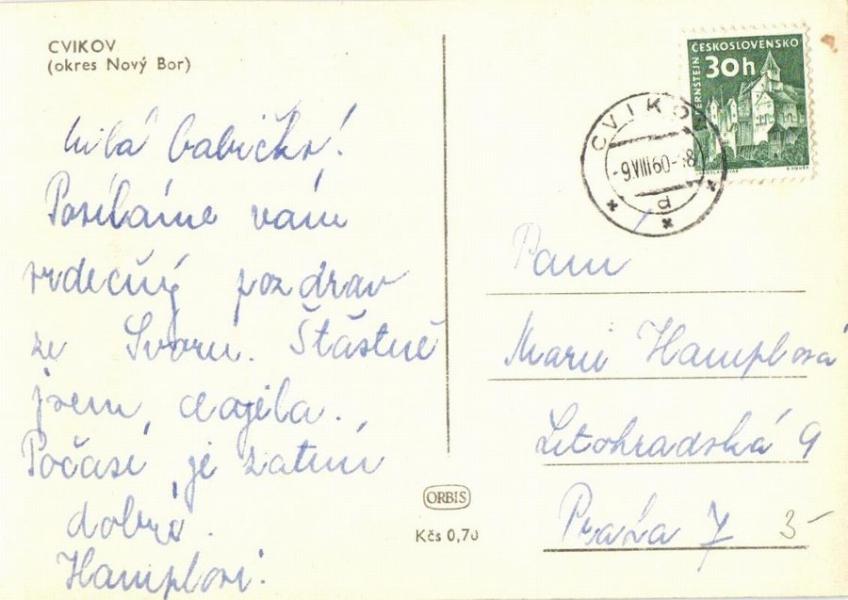 CVIKOV
(okres Nový Bor)
Milá babičko!
Posíláme vám
srdečný pozdrav
ze Svoru. Štástně
jsem dojela.
Počasí je zatím
dobré.
Hamplovi.
ORBIS
Kčs 0,70
ČESKOSLOVENSKO
30h
CVIKOV
-9.VIII.60-18
d
Paní
Marie Hamplová
Letohradská 9
Praha 7
3-